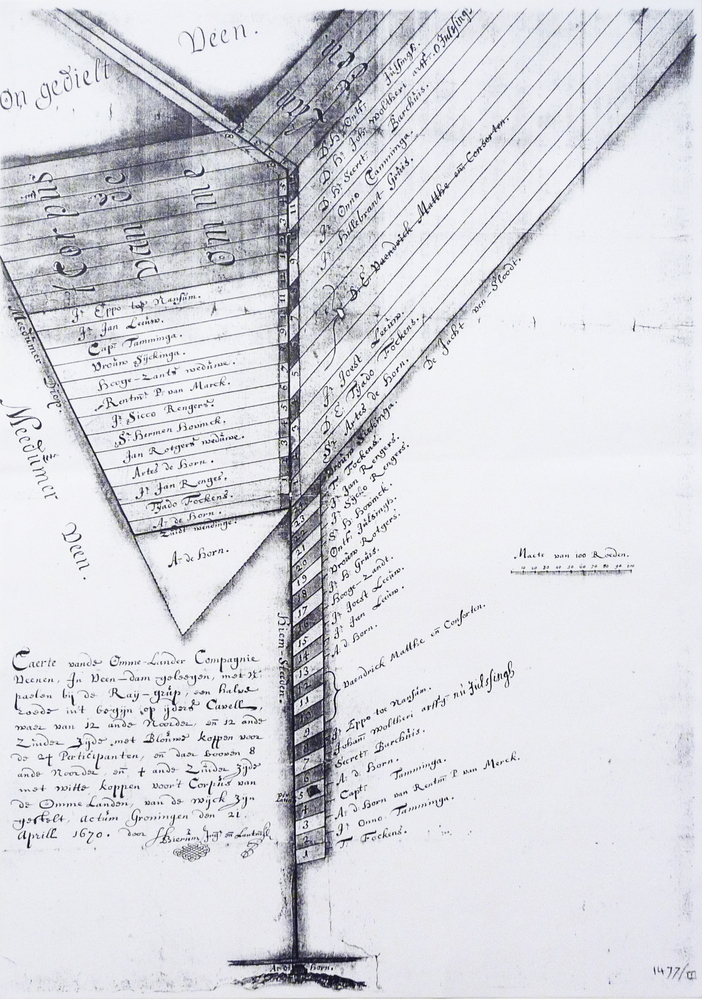 Veen.
On gedielt
Corpus
van de
Omme
Landen
Jr. Eppo tot Nansum.
Jr. Jan Leeuw.
Capt. Tamminga.
Vrouw Sijckinga.
Hooge-Zants weduwe.
Rentmr. P. van Marck.
Jr. Sicco Rengers.
Sr. Hermen Howinck.
Jan Rotgers weduwe.
Artes de Horn.
Jr. Jan Renges.
Tjado Fockens.
A. de Horn.
Zuidt wendinge.
A. de Horn.
Meedumer Diep.
Meedumer
Veen.
Julsingh.
D. Hr. Joh. Wolthers
D. Hr. Secret. Barchuis.
Jr. Onno Tamminga.
Jr. Hillebrant Gruis.
D. E. Vaendrick Matthe en Consorten.
Jr. Joest Leeuw.
D. E. Tjado Fockens.
Sr. Artes de Horn.
De Jacht van Sloodt.
T. Fockens.
Jr. Jan Rengers.
Jr. Sicco Rengers.
Sr. H. Howinck.
Ontf. Julsingh.
Vrouw Rotgers.
Jr. H. Gruis.
Hooge-Zandt.
Jr. Joest Leeuw.
Jr. Jan Leeuw.
A. d Horn.
Vaendrick Matthe en Consorten.
Jr. Eppo tot Nansum.
Johan Wolthers
Julsingh
Secret. Barchuis.
A. d. Horn.
Capt. Tamminga.
A. d Horn van Rentmr. P. van Merck.
Jr. Onno Tamminga.
T. Fockens.
23
22
21
20
19
18
17
16
15
14
13
12
11
10
9
8
7
6
5
4
3
2
1
Maete van 100 Roeden.
10 20 30 40 50 60 70 80 90 100
Caerte vande Omme-Lander Compagnie
Veenen, In Veen-dam gelegen, met
paelen bij de Raij-grup, een halve
roede int begijn op ijder Cavell,
waer van 12 ande Noorder en 12 ande
Zuider Zijde met Blouwe koppen voor
de 24 Participanten, en daer booven 8
ande Noorder, en 4 ande Zuider Zijde
met witte koppen voor't Corpus van
de Omme Landen, van de wijck zijn
gestelt, actum Groningen den 21.
Aprill 1670. door
A. de Horn.
1477/